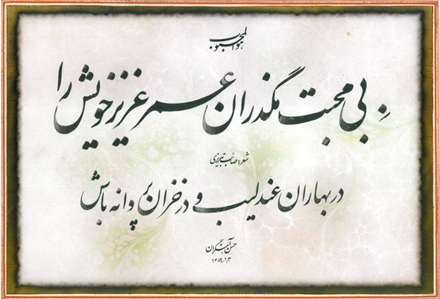 هوالمحبوب
بی محبت مگذران عمر عزیز خویش را
شعر: صائب تبریزی
در بهاران عندلیب و در خزان پروانه باش
حسن آهنگران